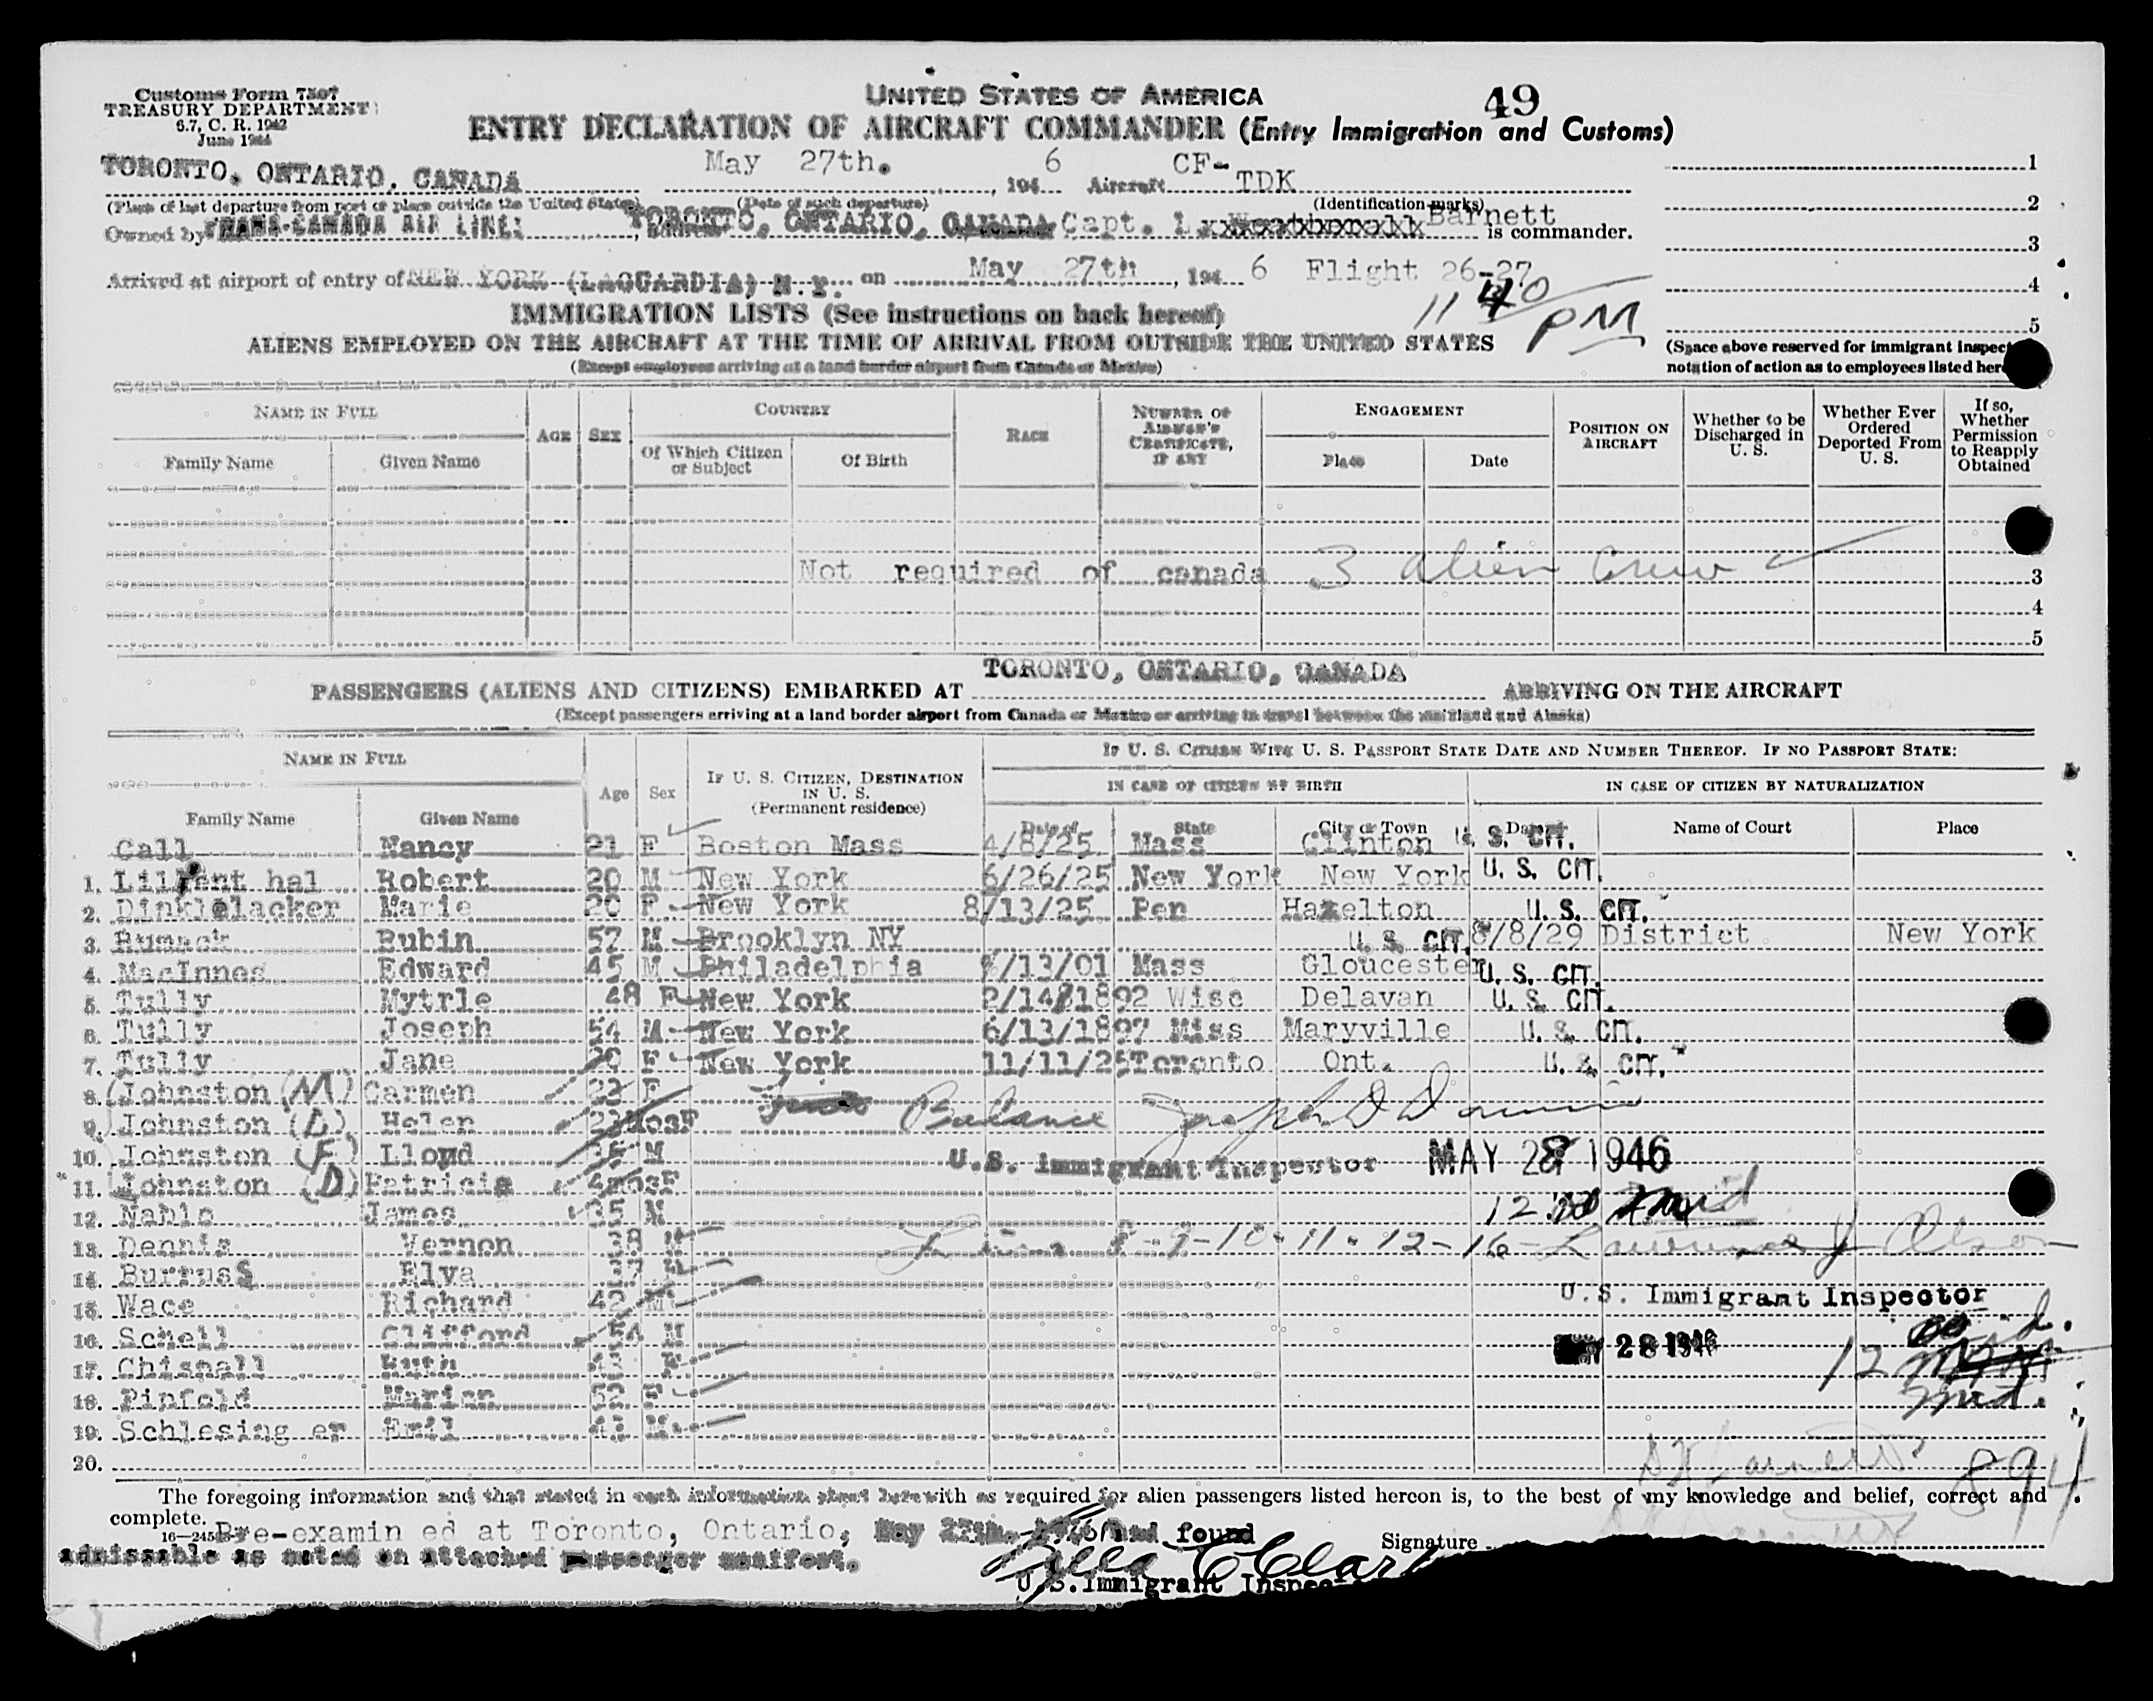 Customs Form 7507
TREASURY DEPARTMENT
6.7, C. R. 1943
June 1944
UNITED STATES OF AMERICA
49
ENTRY DECLARATION OF AIRCRAFT COMMANDER (Entry Immigration and Customs)
TORONTO, ONTARIO, CANADA May 27th. , 1946 Aircraft CF-TDK 1
(Place of last departure from port or place outside the United States) (Date of such departure) (Identification marks) 2
Owned by TRANS-CANADA AIR LINES, address TORONTO, ONTARIO, CANADA Capt. Barnett is commander. 3
Arrived at airport of entry of NEW YORK (LAGUARDIA) N.Y. on May 27th , 1946 Flight 26-27 4
11 40 PM
IMMIGRATION LISTS (See instructions on back hereof) 5
ALIENS EMPLOYED ON THE AIRCRAFT AT THE TIME OF ARRIVAL FROM OUTSIDE THE UNITED STATES
(Space above reserved for immigrant inspect
notation of action as to employees listed her
(Except employees arriving at a land border airport from Canada or Mexico)
NAME IN FULL AGE SEX COUNTRY RACE NUMBER OF AIRMAN'S CERTIFICATE, IF ANY ENGAGEMENT POSITION ON AIRCRAFT Whether to be Discharged in U. S. Whether Ever Ordered Deported From U. S. If so, Whether Permission to Reapply Obtained
Family Name Given Name Of Which Citizen or Subject Of Birth Place Date
Not required of canada 3 alien Crew 3
4
5
TORONTO, ONTARIO, CANADA
PASSENGERS (ALIENS AND CITIZENS) EMBARKED AT ARRIVING ON THE AIRCRAFT
(Except passengers arriving at a land border airport from Canada or Mexico or arriving in travel between the mainland and Alaska)
NAME IN FULL Age Sex IF U. S. CITIZEN, DESTINATION IN U. S. (Permanent residence) IF U. S. CITIZEN WITH U. S. PASSPORT STATE DATE AND NUMBER THEREOF. IF NO PASSPORT STATE:
IN CASE OF CITIZEN BY BIRTH IN CASE OF CITIZEN BY NATURALIZATION
Family Name Given Name Date of State City or Town Date of Name of Court Place
Call Nancy 21 F Boston Mass 4/8/25 Mass Clinton U. S. CIT.
1. Robert 20 M New York 6/26/25 New York New York U. S. CIT.
2. Dinklelacker Marie 20 F New York 8/13/25 Pen Hazelton U. S. CIT.
3. Rubin 57 M Brooklyn NY U. S. CIT. 8/8/29 District New York
4. MacInnes Edward 45 M Philadelphia /13/01 Mass Gloucester U. S. CIT.
5. Tully Mytrle 48 F New York 2/14/1892 Wisc Delavan U. S. CIT.
6. Tully Joseph 54 M New York 6/13/1897 Miss Maryville U. S. CIT.
7. Tully Jane 20 F New York 11/11/25 Toronto Ont. U. S. CIT.
8. Johnston (M) Carmen 22 F
9. Johnston (D) Helen 23mosF Balance Joseph D
10. Johnston (F) Lloyd M U.S. Immigrant Inspector MAY 28 1946
11. Johnston (D) Patricia 4mosF
12. Nablo James 35 M 12 mid
13. Dennis Vernon 38 M 8-9-10-11-12-16- Lawrence J Olson
14. Burruss Elva 37
15. Wace Richard 42 M U.S. Immigrant Inspector
16. Schell Clifford 54 M 28 1946 12 mid.
17. Chisnall Ruth F
18. Pinfold Marion 52 F
19. Schlesing er Emil M
20. 894
The foregoing information and that stated in each information sheet herewith as required for alien passengers listed hereon is, to the best of my knowledge and belief, correct and
complete.
Pre-examin ed at Toronto, Ontario, May 27th, 1946 and found Signature
admissable as noted on attached passenger manifest.
U.S. Immigrant Inspec